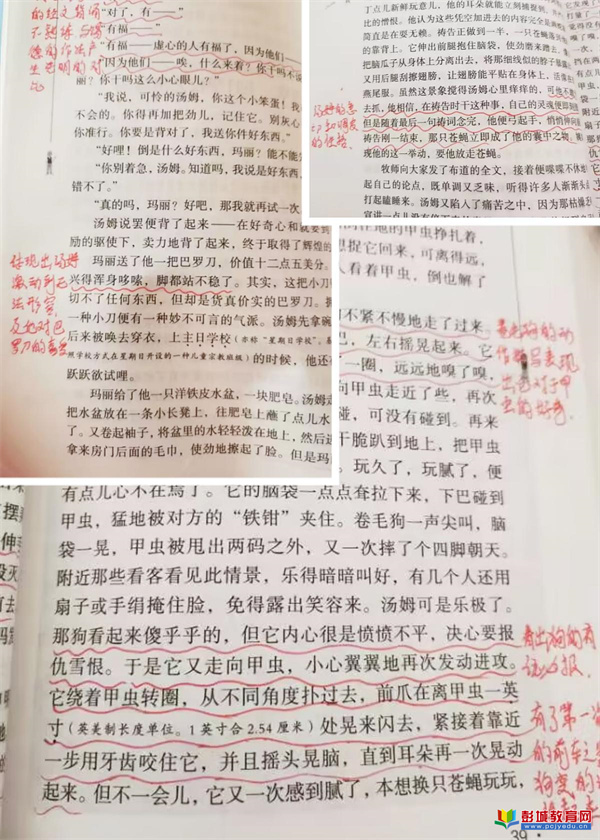 “对了,有——”
有福——”
“有福——虚心的人有福了,因为他们——
“因为他们——唉,什么来着?你干吗不说
丽?你干吗这么小心眼儿?”
“我说,可怜的汤姆,你这个小笨蛋!我
不会的。你得再加把劲儿,记住它。别灰心
你准行。你要是背对了,我送你件好东西。
“好哩!倒是什么好东西,玛丽?能不能
“你别着急,汤姆。知道吗,我说是好东西,
错不了。”
“真的吗,玛丽?好吧,那我就再试一次
汤姆说罢便背了起来——在好奇心和就要到
励的驱使下,卖力地背了起来,终于取得了辉煌的
玛丽送了他一把巴罗刀,价值十二点五美分。
兴得浑身哆嗦,脚都站不稳了。其实,这把小刀
切不了任何东西,但却是货真价实的巴罗刀。拥
一种小刀便有一种妙不可言的气派。汤姆先拿碗
后来被唤去穿衣,上主日学校(亦称“星期日学校”。
照学校方式在星期日开设的一种儿童宗教班级)的时候,他还
跃跃欲试哩。
玛丽给了他一只洋铁皮水盆,一块肥皂。汤姆走
把水盆放在一条小长凳上,往肥皂上蘸了点儿水
了。又卷起袖子,将盆里的水轻轻泼在地上,然后进
拿来房门后面的毛巾,使劲地擦起了脸。但是玛
体现出汤姆
激动到无
法形容,
反应对巴
罗刀的喜爱
丁点儿新鲜玩意儿,他的耳朵就能立刻捕捉到,
比的憎恨。他认为这些凭空加进去的内容完全是
简直是在耍无赖。祷告正做到一半,一只苍蝇落
的靠背上。它伸出前腿抱住脑袋,使劲磨来蹭去,
把脑瓜子从身体上分离出去,将那细线似的脖子暴露
又用后腿刮擦翅膀,让翅膀能平贴在身体上,活像
燕尾服。虽然这景象搅得汤姆心里痒痒的,可他不敢
去抓,他相信,在祷告时干这种事,自己的灵魂便即刻
但是随着最后一句祷词念完,他便弓起手,悄悄伸向
祷告刚一结束,那只苍蝇立即成了他的囊中之物。
现他的这一举动,要他放走苍蝇。
牧师向大家发布了布道的全文,接着便喋喋不休地
起自己的论点,既单调又乏味,听得许多人渐渐
打起瞌睡来。汤姆又陷入了痛苦之中,因为那枯燥
在地的甲虫挣扎着,
想捉它回来,可离得远,
人看着甲虫,倒也解了
不紧不慢地走了过来。
巴,左右摇晃起来。它
一圈,远远地嗅了嗅,
向甲虫走近了些,再次
碰,可没有碰到。再来
干脆趴到地上,把甲虫
。玩久了,玩腻了,便
看出狗的动
作
出它对于甲
虫的好奇。
有点儿心不在焉了。它的脑袋一点点耷拉下来,下巴碰到
甲虫,猛地被对方的“铁钳”夹住。卷毛狗一声尖叫,脑
袋一晃,甲虫被甩出两码之外,又一次摔了个四脚朝天。
附近那些看客看见此情景,乐得暗暗叫好,有几个人还用
扇子或手绢掩住脸,免得露出笑容来。汤姆可是乐极了。
那狗看起来傻乎乎的,但它内心很是愤愤不平,决心要报
仇雪恨。于是它又走向甲虫,小心翼翼地再次发动进攻。
它绕着甲虫转圈,从不同角度扑过去,前爪在离甲虫一英
寸(英美制长度单位。1英寸合2.54厘米)处晃来闪去,紧接着靠近
一步用牙齿咬住它,并且摇头晃脑,直到耳朵再一次晃动
起来。但不一会儿,它又一次感到腻了,本想换只苍蝇玩玩,
看出狗的有
有了第一次
的前车之
狗变的
39
彭城教育网
www.pcjyedu.cn